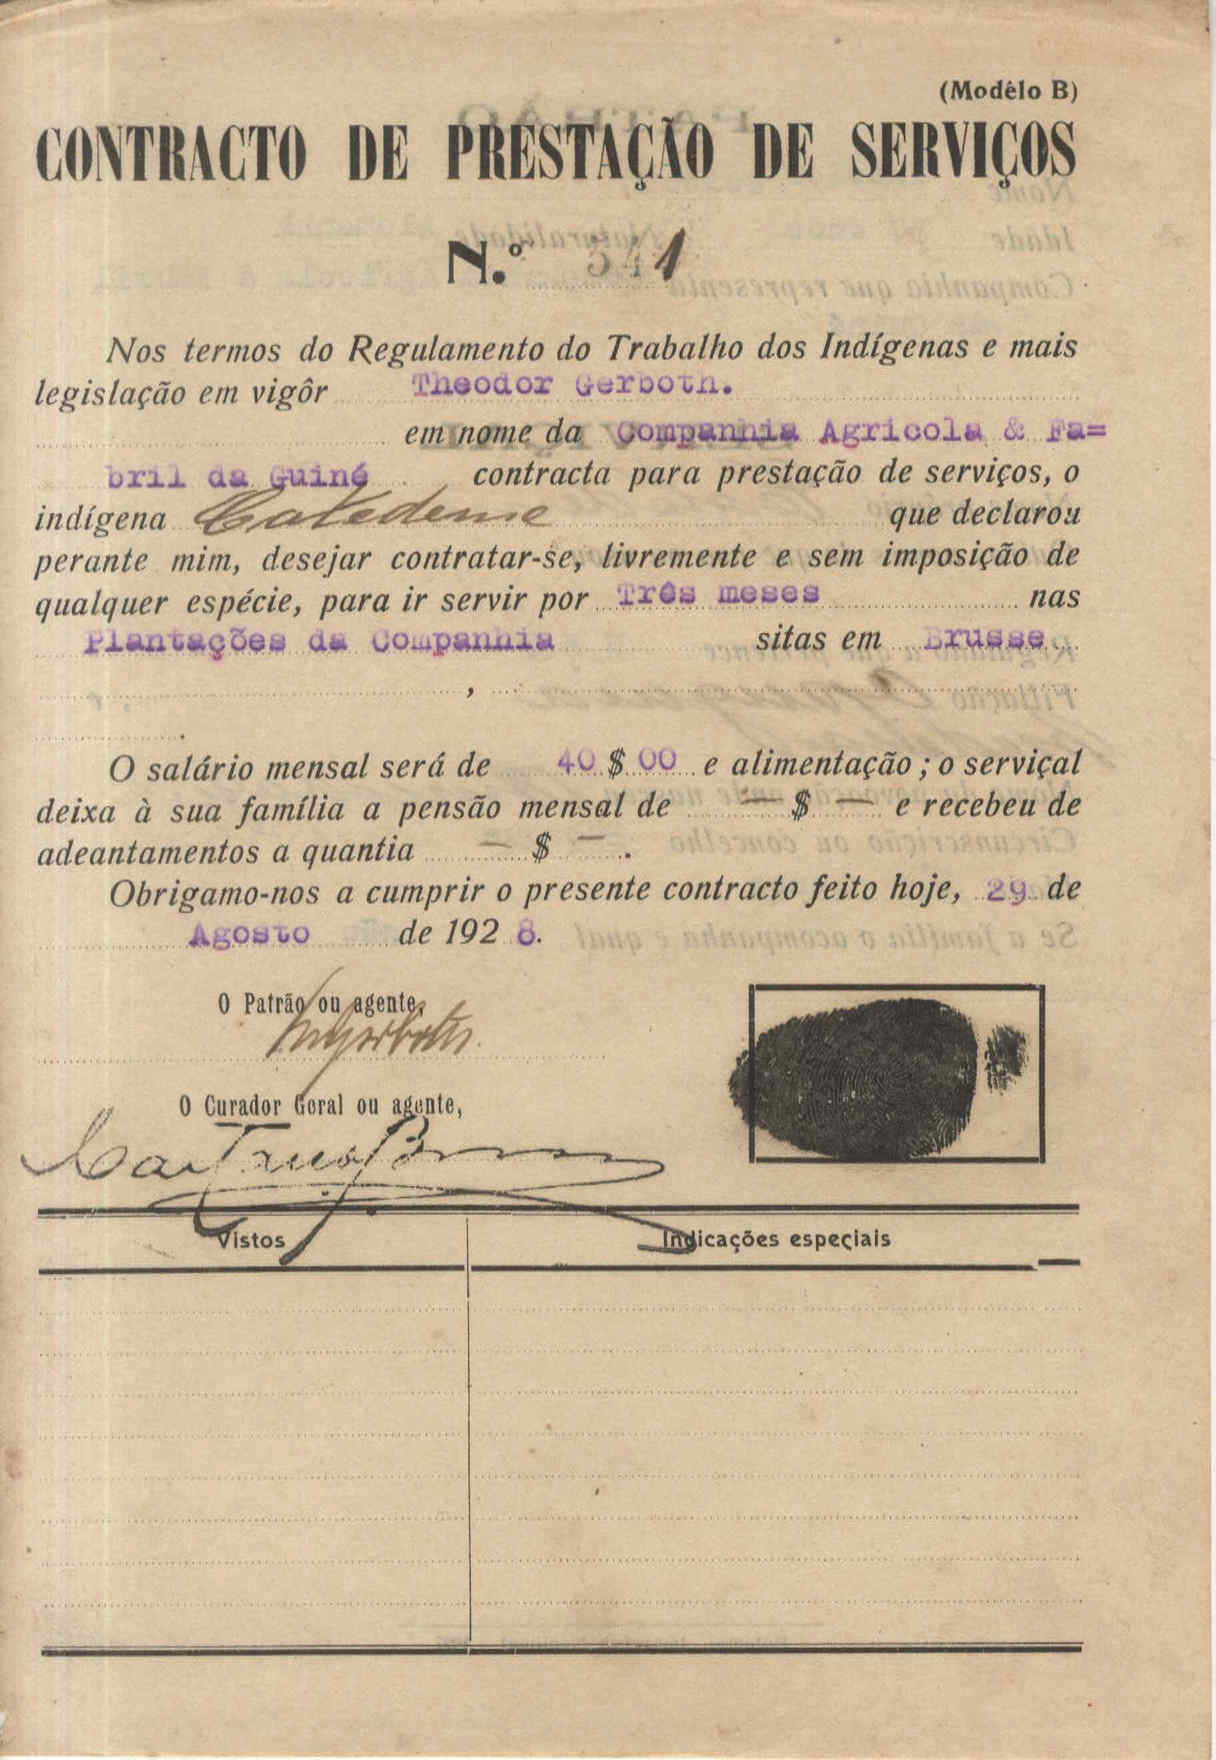 (Modêlo B)
CONTRACTO DE PRESTAÇÃO DE SERVIÇOS
N.º 341
Nos termos do Regulamento do Trabalho dos Indígenas e mais
legislação em vigôr Theodor Gerboth.
em nome da Companhia Agricola & Fa=
bril da Guiné contracta para prestação de serviços, o
indígena que declarou
perante mim, desejar contratar-se, livremente e sem imposição de
qualquer espécie, para ir servir por Três meses nas
Plantações da Companhia sitas em Brusse
,
.
O salário mensal será de 40 $ 00 e alimentação; o serviçal
deixa à sua família a pensão mensal de — $ — e recebeu de
adeantamentos a quantia — $ — .
Obrigamo-nos a cumprir o presente contracto feito hoje, 29 de
Agosto de 192 8.
O Patrão ou agente,
O Curador Geral ou agente,
Vistos Indicações especiais